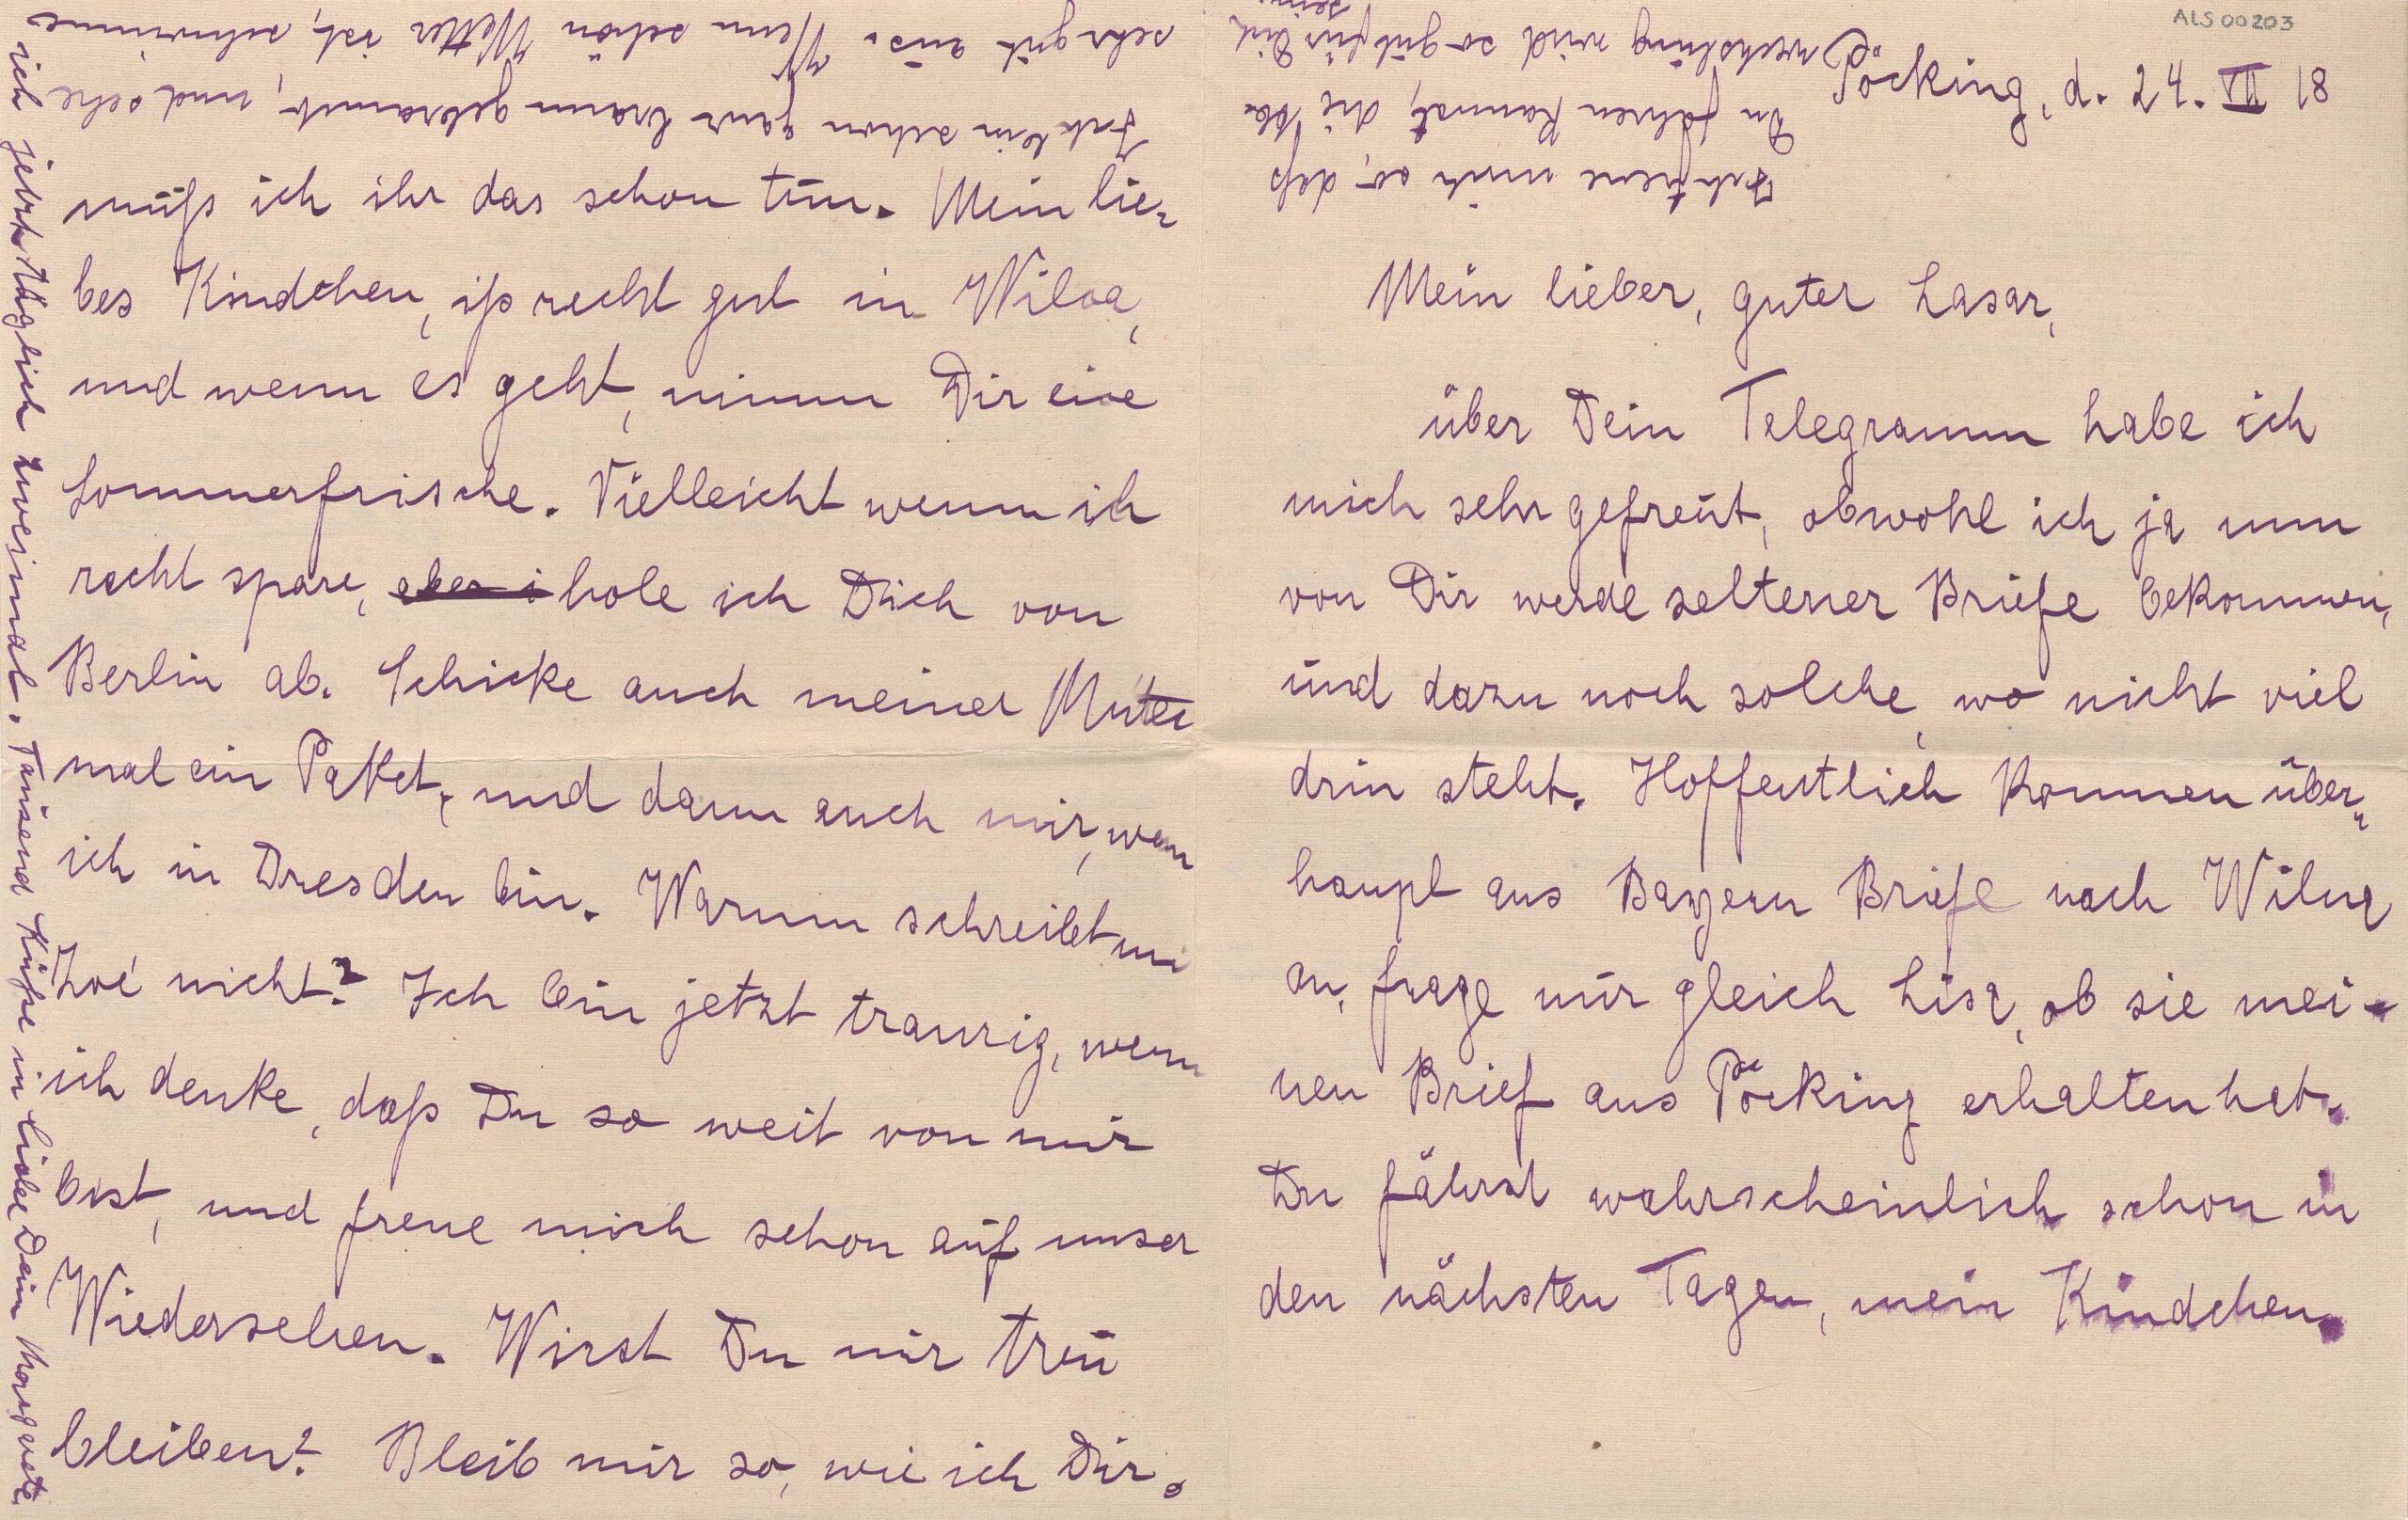 ALS 00203
Pöcking, d. 24. VII 18
Mein lieber, guter Lasar,
über Dein Telegramm habe ich
mich sehr gefreut, obwohl ich ja nun
von Dir werde seltener Briefe bekommen,
und dazu noch solche, wo nicht viel
drin steht. Hoffentlich kommen über-
haupt aus Bayern Briefe nach Wilna
an, frage nur gleich Lisa, ob sie mei-
nen Brief aus Pöcking erhalten hat.
Du fährst wahrscheinlich schon in
den nächsten Tagen, mein Kindchen.
Ich freue mich so, daß
Du fahren kannst, die
wechslung wird so gut für Dich
sein.
muß ich ihr das schon tun. Mein lie-
bes Kindchen, iß recht gut in Wilna,
und wenn es geht, nimm Dir eine
Sommerfrische. Vielleicht wenn ich
recht spare, aber i hole ich Dich von
Berlin ab. Schicke auch meiner Mutter
mal ein Paket, und dann auch mir, wenn
ich in Dresden bin. Warum schreibt mir
Zoé nicht? Ich bin jetzt traurig, wenn
ich denke, daß Du so weit von mir
bist, und freue mich schon auf unser
Wiedersehen. Wirst Du mir treu
bleiben? Bleib mir so, wie ich Dir.
Ich bin schon ganz braun gebrannt, und sehe
sehr gut aus. Wenn schön Wetter ist, schwimme
ich jetzt täglich zweimal. Tausend Küsse in Liebe Dein Margarete.